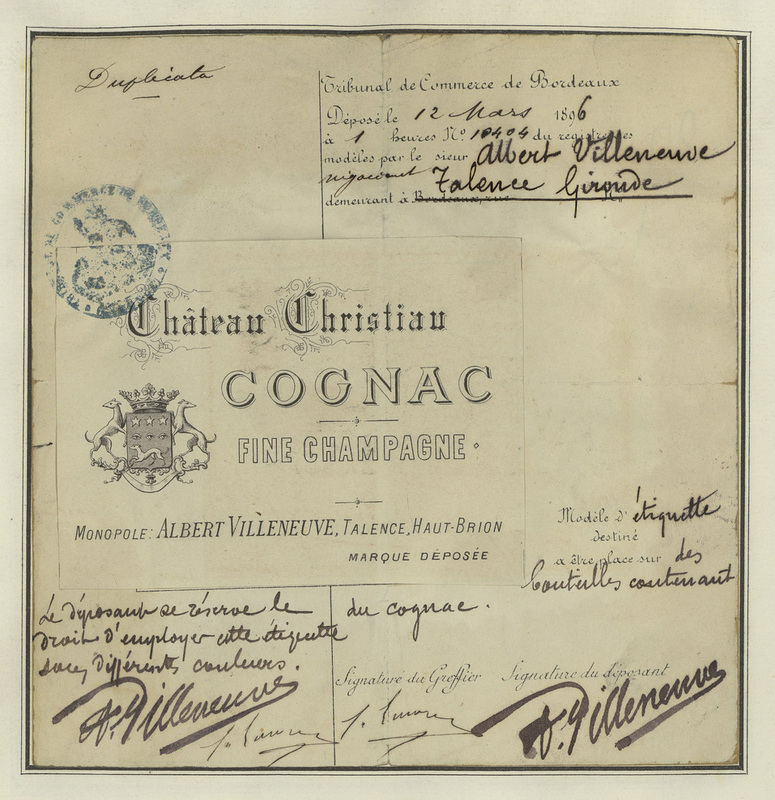 Duplicata
Tribunal de Commerce de Bordeaux
Déposé le 12 Mars 1896
à 1 heures No 10404 du registre des
modèles par le sieur Albert Villeneuve
négociant Talence Gironde
demeurant à Bordeaux, rue No
TRIBUNAL DE COMMERCE DE BORDEAUX
Château Christiau
COGNAC
FINE CHAMPAGNE.
MONOPOLE: ALBERT VILLENEUVE, TALENCE, HAUT-BRION
MARQUE DÉPOSÉE
Modèle d'étiquette
destiné
a être place sur des
bouteilles contenant
du cognac.
Le déposant se réserve le
droit d'employer cette étiquette
sous différentes couleurs.
Signature du Greffier Signature du déposant
A. Villeneuve
A. Villeneuve